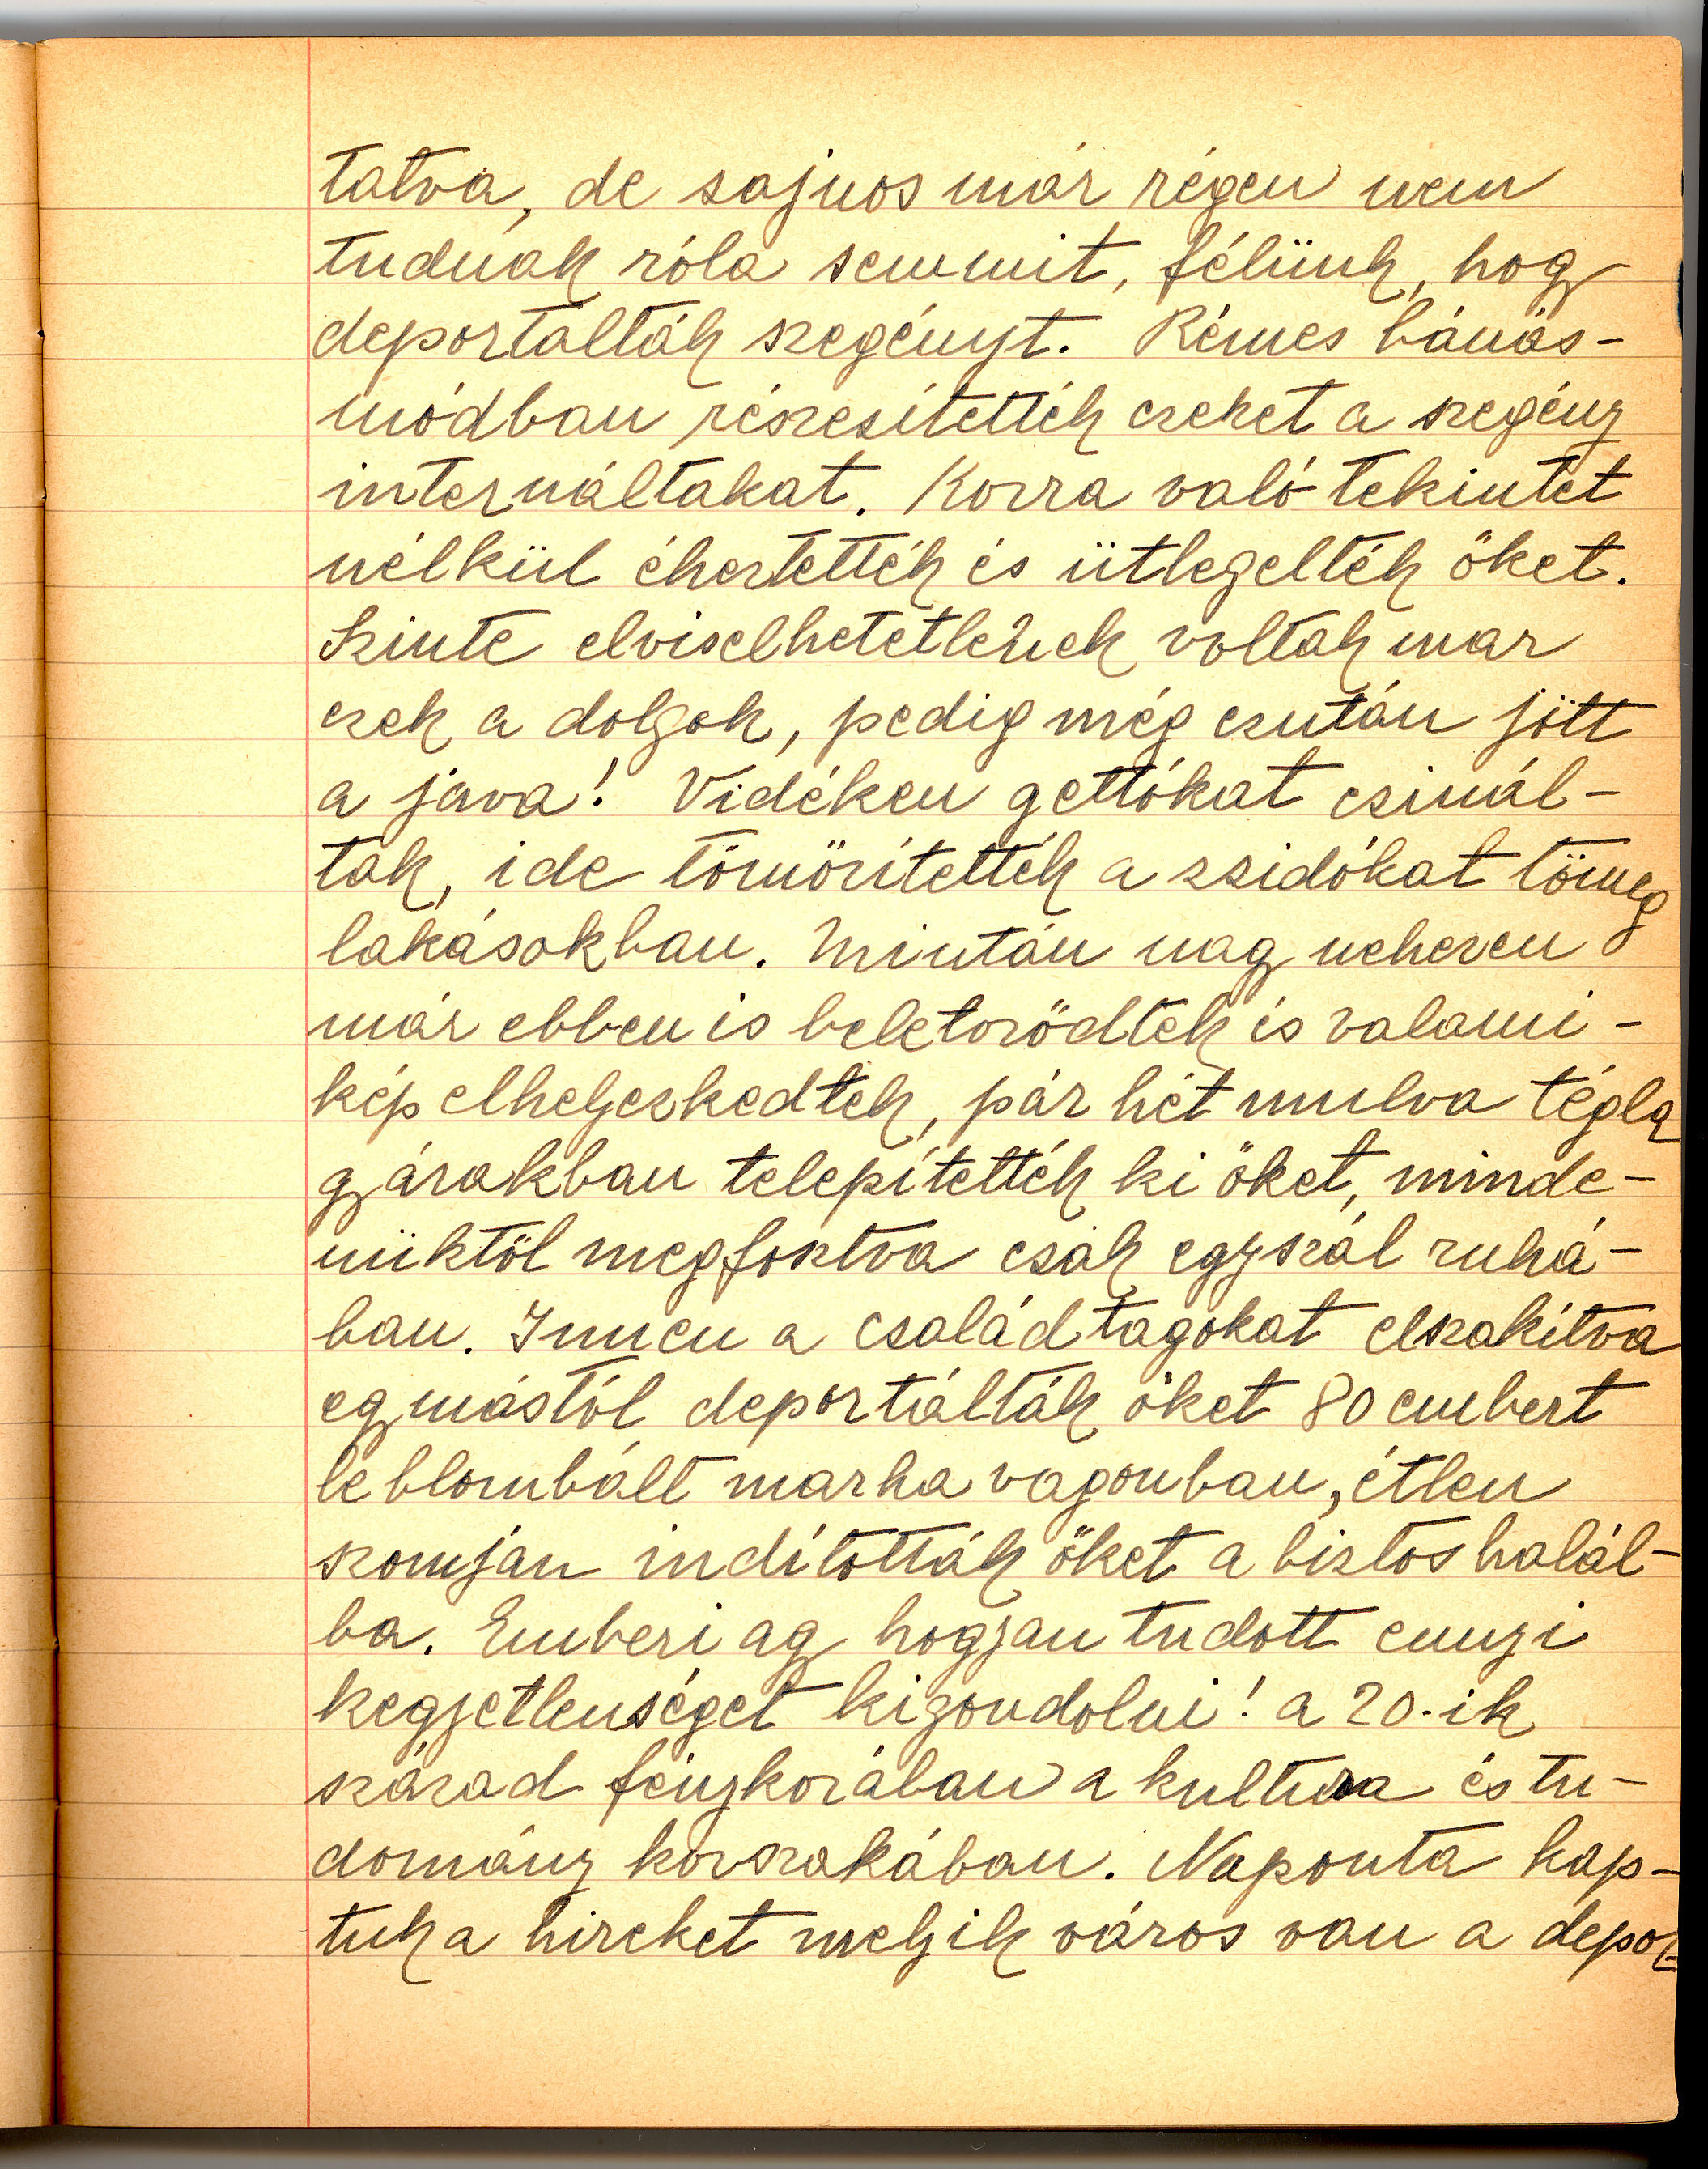 tatva, de sajnos már régen nem
tudnak róla semmit, félünk, hogy
deportálták szegényt. Rémes bánás-
módban részesítették ezeket a szegény
internáltakat. Korra való tekintet
nélkül éheztették és ütlegelték őket.
Szinte elviselhetetlenek voltak mar
ezek a dolgok, pedig még ezután jött
a java! Vidéken gettókat csinál-
tak, ide tömörítették a zsidókat tömeg
lakásokban. Miután nagy nehezen
már ebben is beletorödtek és valami-
kép elhelyezkedtek, pár hét mulva tégla
gyárakban telepítették ki őket, minde-
nüktöl megfosztva csak egyszál ruhá-
ban. Innen a családtagokat elszakítva
egymástól deportálták őket 80 embert
leblombált marha vagonban, étlen
szomjan indították őket a biztos halál-
ba. Emberi agy hogyan tudott ennyi
kegyetlenséget kigondolni! a 20.-ik
század fénykorában a kultura és tu-
domány korszakában. Naponta kap-
tuk a hireket melyik város van a depor-